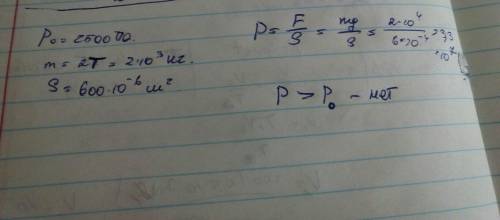 P₀ = 250000.
m = 2T = 2·10³ кг.
S = 600·10⁻⁶ м²
P = F/S = mg/S = 2·10⁴/6·10⁻⁴ = 3,3·10⁷
P > P₀ – нет